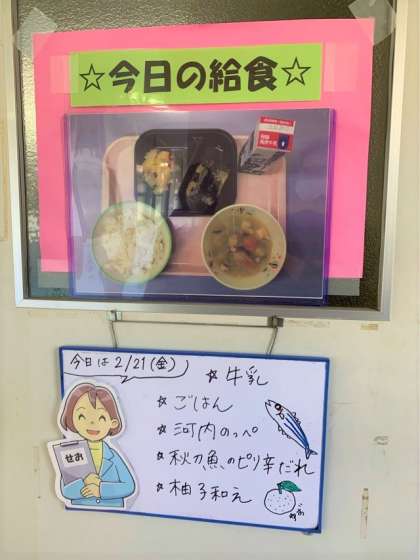 ☆今日の給食☆
今日は2/21(金)
☆牛乳
☆ごはん
☆河内のっぺ
☆秋刀魚のピリ辛だれ
☆柚子和え
せお